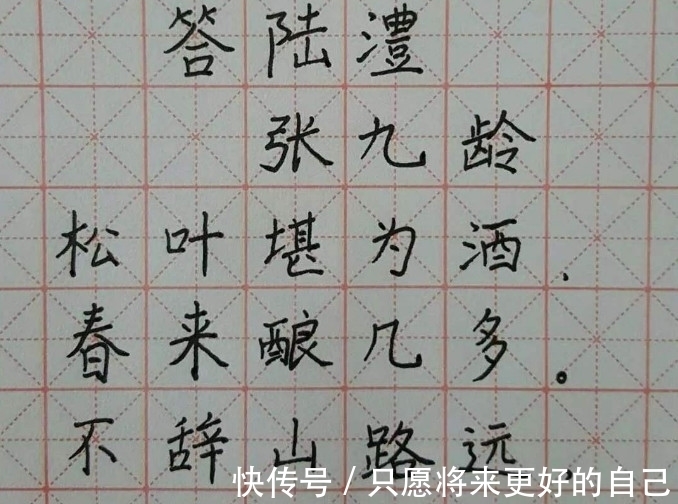 答陆澧
张九龄
松叶堪为酒，
春来酿几多。
不辞山路远，
快传号/只愿将来更好的自己